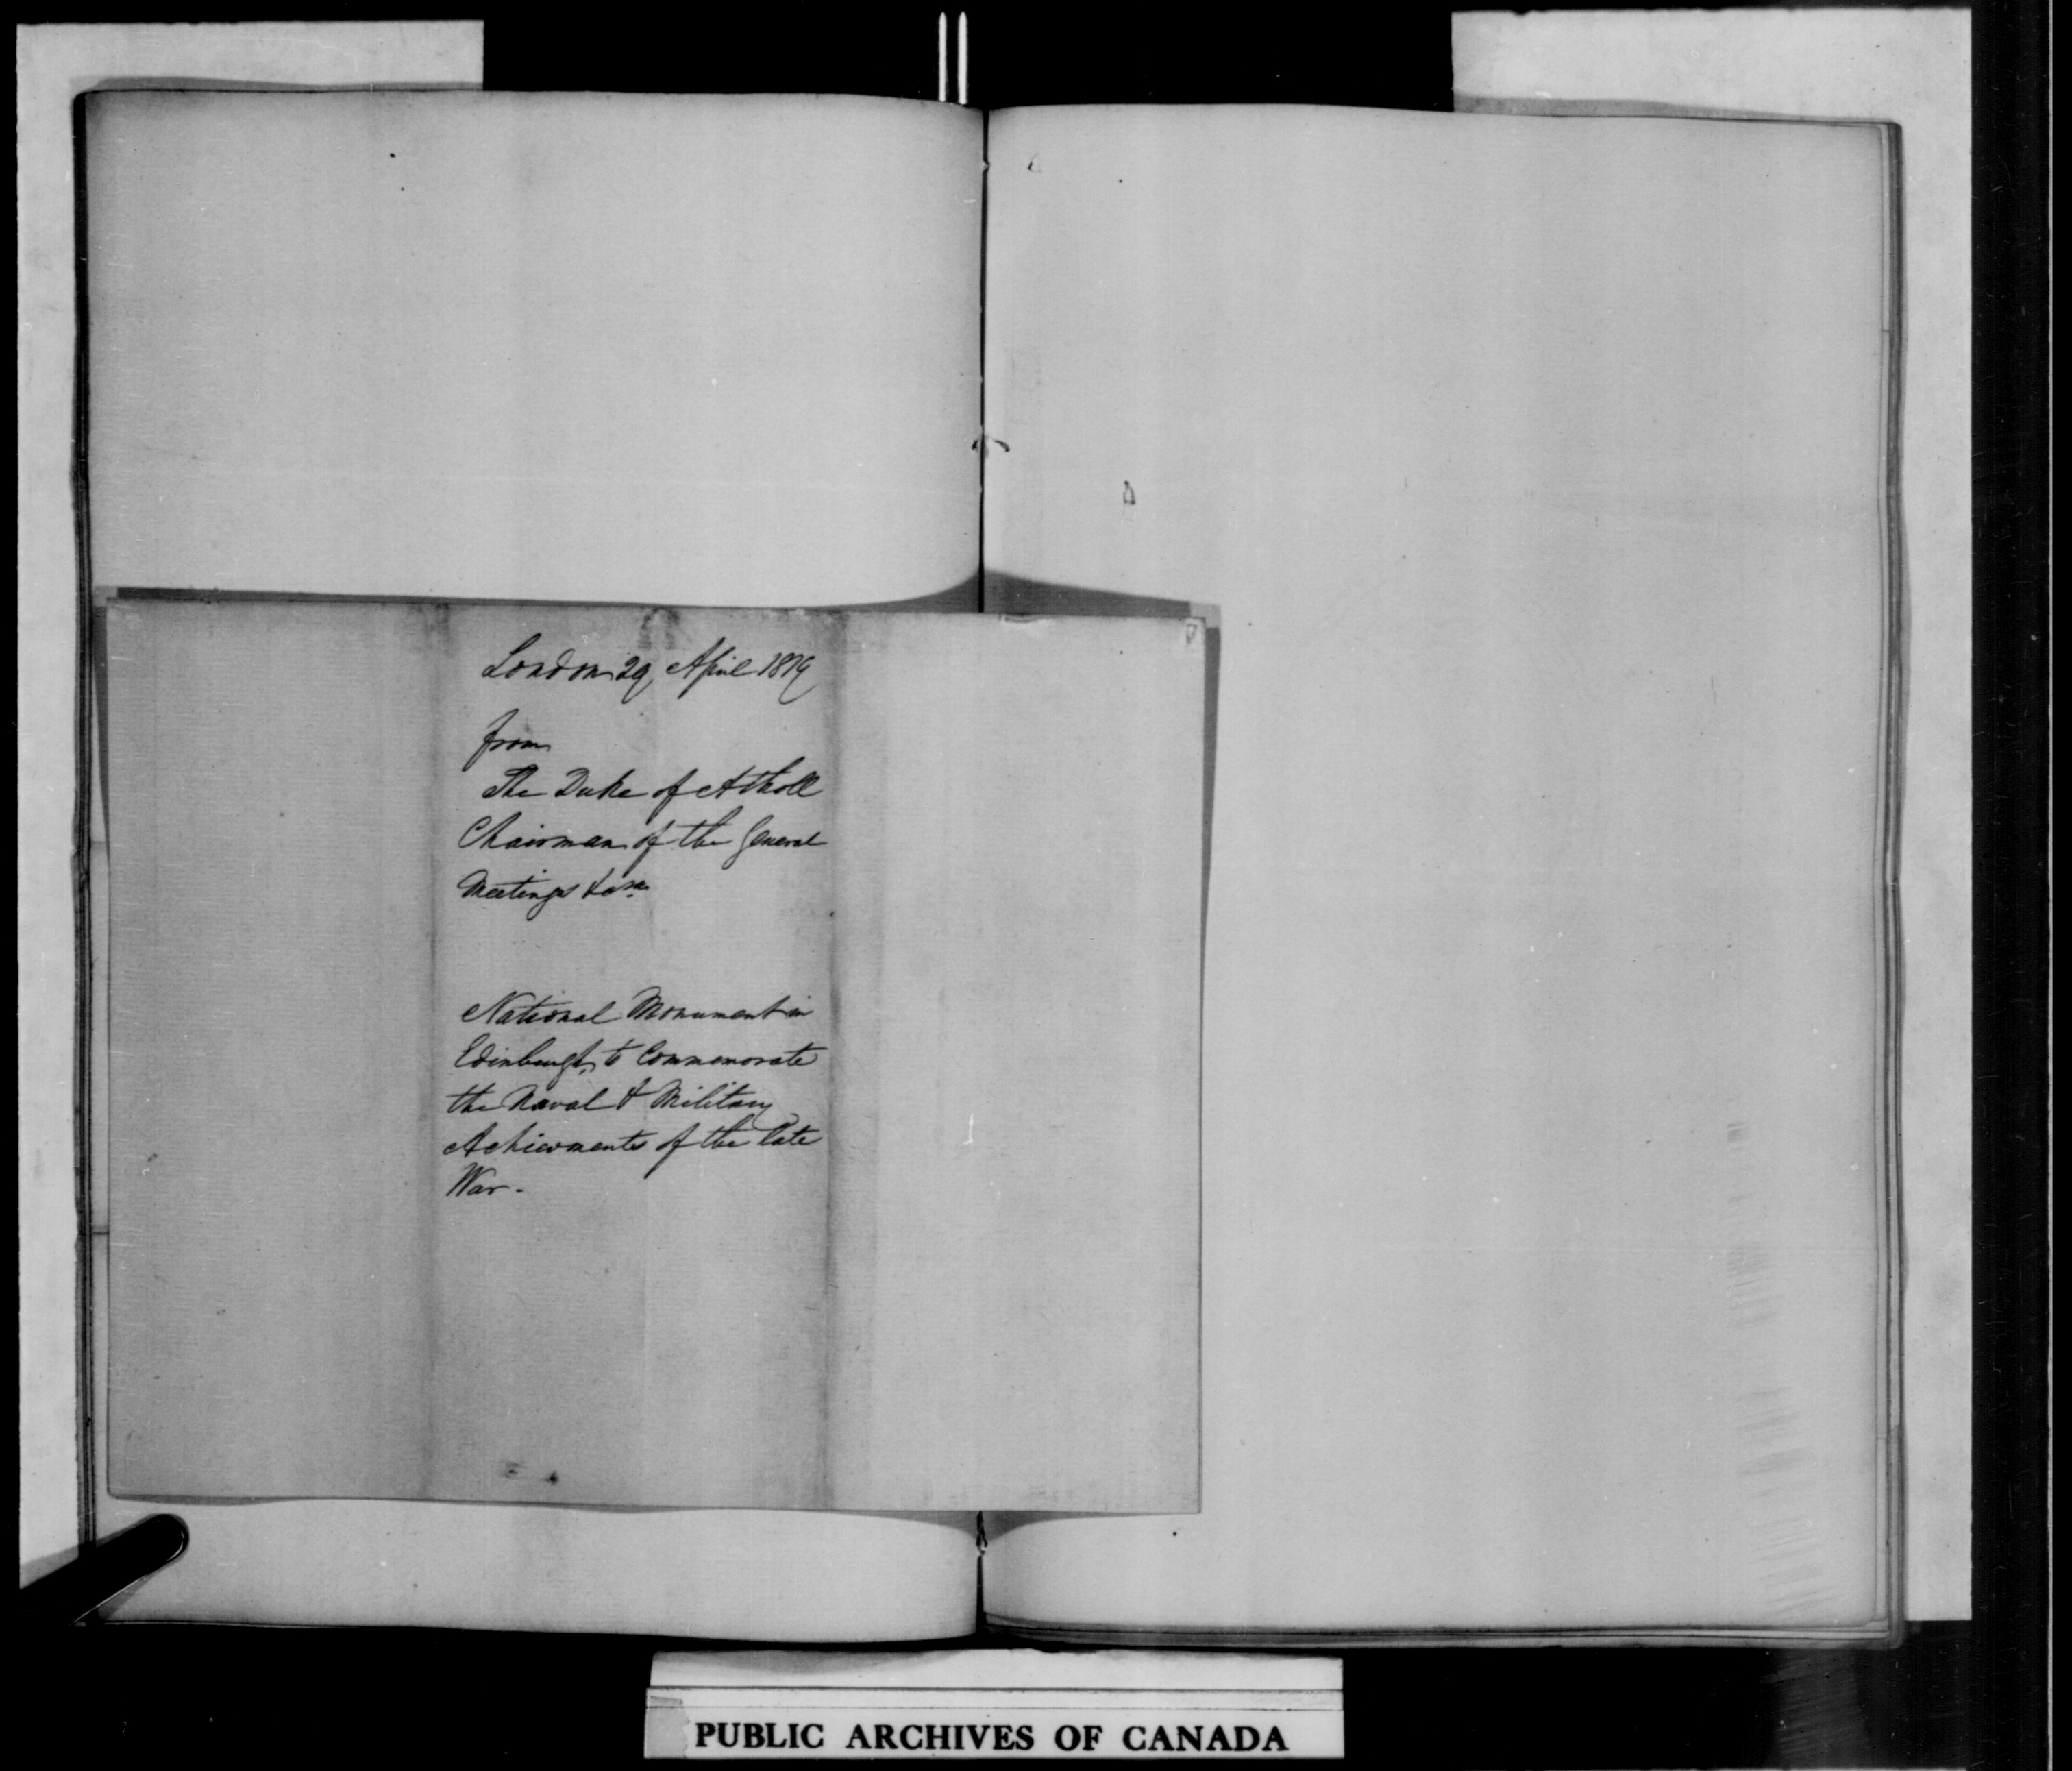 London 29 April 1819
from
The Duke of Atholl
Chairman of the General
Meetings
National Monument in
Edinburgh, to Commemorate
the Naval & Military
Achievments of the late
War -
PUBLIC ARCHIVES OF CANADA